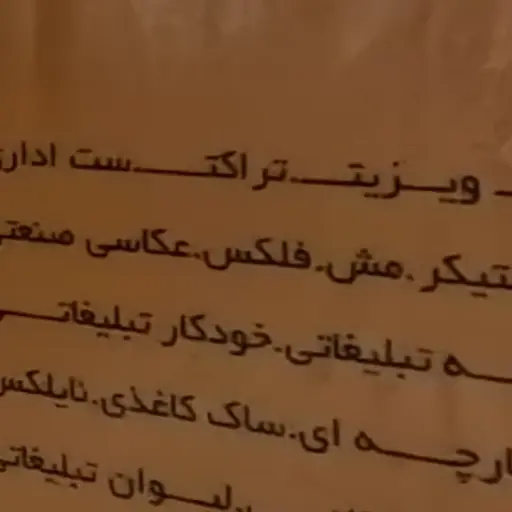 ویزیت.تراکت.ست اداری
ستیکر.مش.فلکس.عکاسی صنعتی
ه تبلیغاتی.خودکار تبلیغاتی
ارچه ای.ساک کاغذی.نایلکس
.لیوان تبلیغاتی